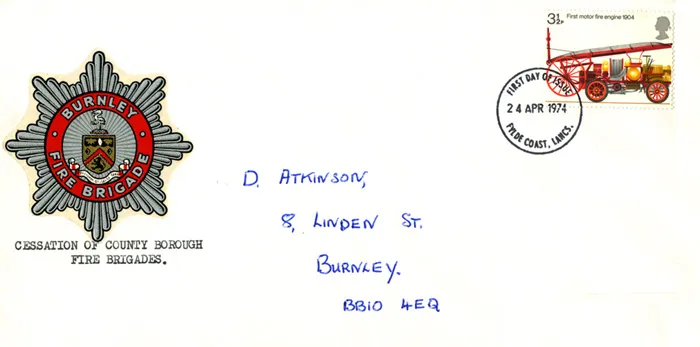 3½P First motor fire engine 1904
FIRST DAY OF ISSUE
24 APR 1974
FYLDE COAST, LANCS.
BURNLEY
FIRE BRIGADE
CESSATION OF COUNTY BOROUGH
FIRE BRIGADES.
D. ATKINSON,
8, LINDEN ST.
BURNLEY.
BB10 4EQ